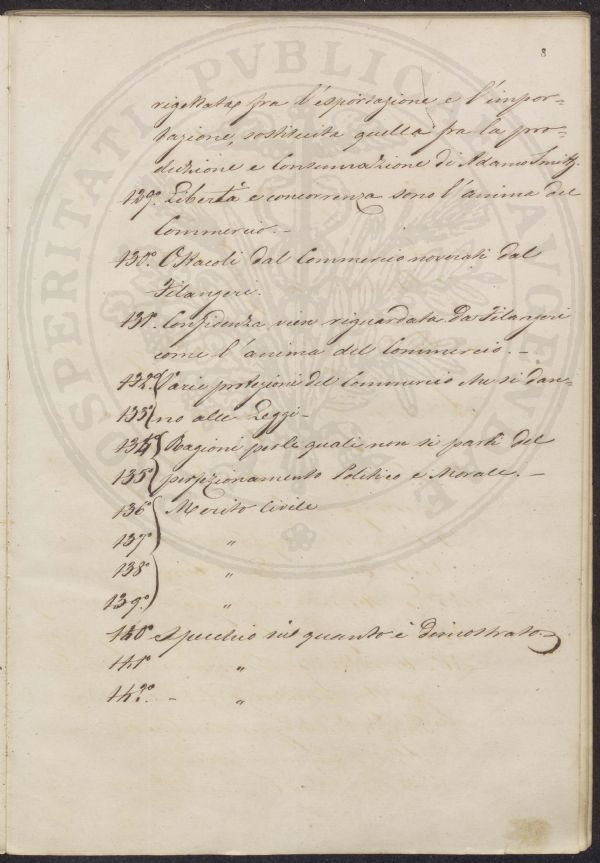 8
rigettata, fra l'esportazione e l'impor=
tazione, sostituita quella fra la pro=
duzione e Consumazione di Adamo Smitz.
129.° Libertà e concorrenza sono l'anima del
Commercio. -
130.° Ostacoli dal Commercio noverati dal
Filangeri.
131.° Confidenza vien riguardata da Filangeri
come l'anima del Commercio. -
132.° Varie protezioni del Commercio che si dan=
133.° no alle Leggi -
134.° Ragioni per le quali non si parli del
135.° perfezionamento Politico e Morale. -
136.° Merito Civile
137.° "
138.° "
139.° "
140.° Specchio sù quanto è dimostrato.
141.° "
142.° - "
PROSPERITATI PVBLICAE AVGENDAE